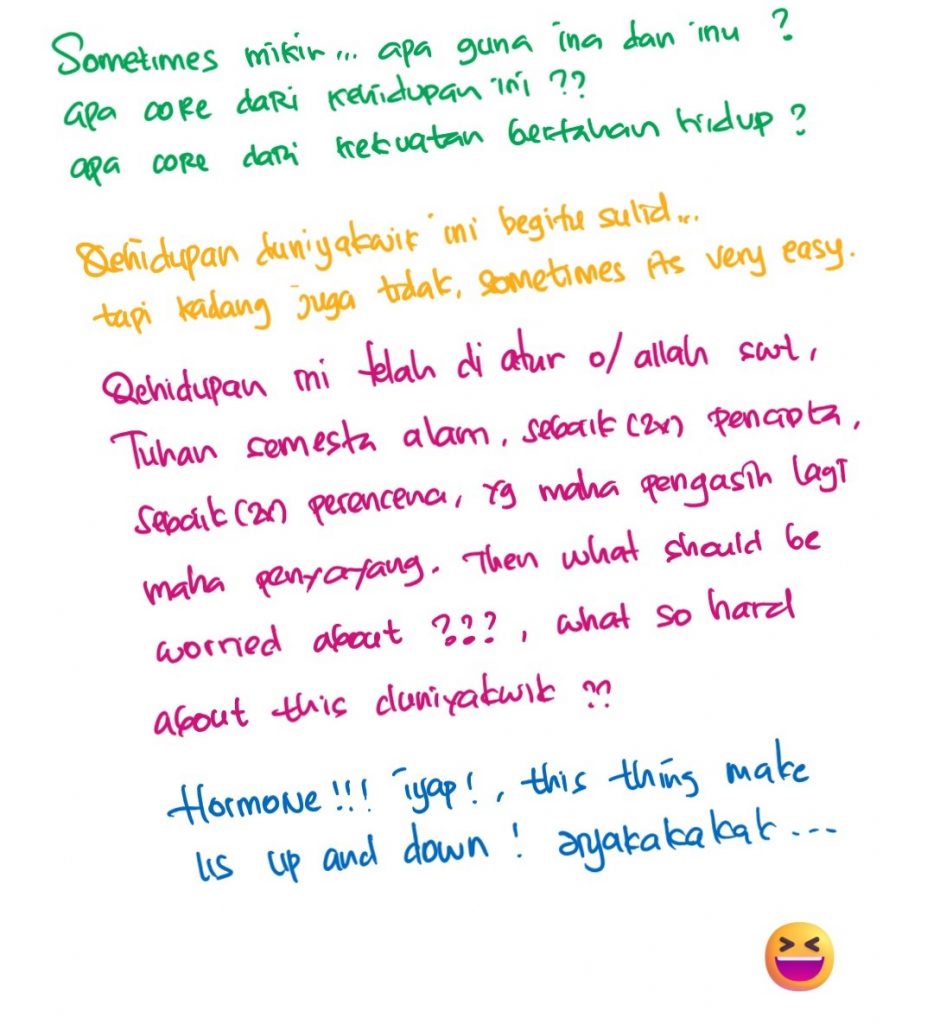 Sometimes mikir... apa guna ina dan inu ?
apa core dari kehidupan ini ??
apa core dari kekuatan bertahan hidup ?
Qehidupan duniyakwik ini begitu sulid...
tapi kadang juga tidak, sometimes its very easy.
Qehidupan ini telah di atur o/ allah swt,
Tuhan semesta alam, sebaik(2x) pencipta,
sebaik(2x) perencena, yg maha pengasih lagi
maha penyayang. Then what should be
worried about ???, what so hard
about this duniyakwik ??
Hormone!!! iyap!, this thing make
us up and down !